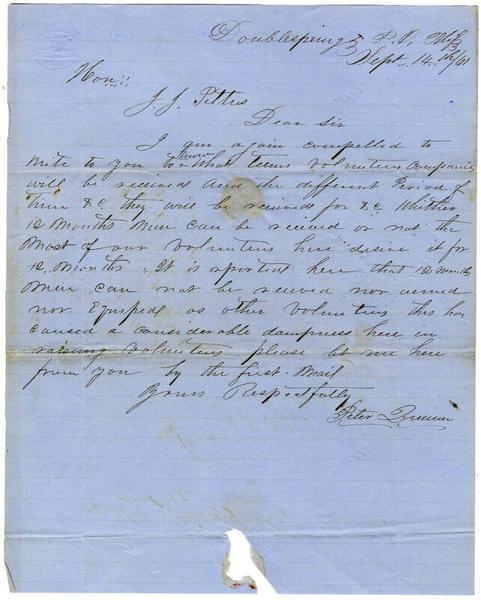 Doublesprings P.O, Miss
Sept. 14th /61
Hon:
J. J. Pettus
Dear Sir
I am again compelled to
write to you to know what terms volunteers Companies
will be received and the different Period of
time &c they will be received for &c Whither
12 Months Men can be received or not the
Most of our volunteers here desire it for
12, Months. It is reported here that 12 months
Men can not be received nor armed
nor Equiped as other volunteers this has
caused a considerable dampness here in
raising volunteers please let me here
from you by the first Mail
Yours Respectfully
Peter